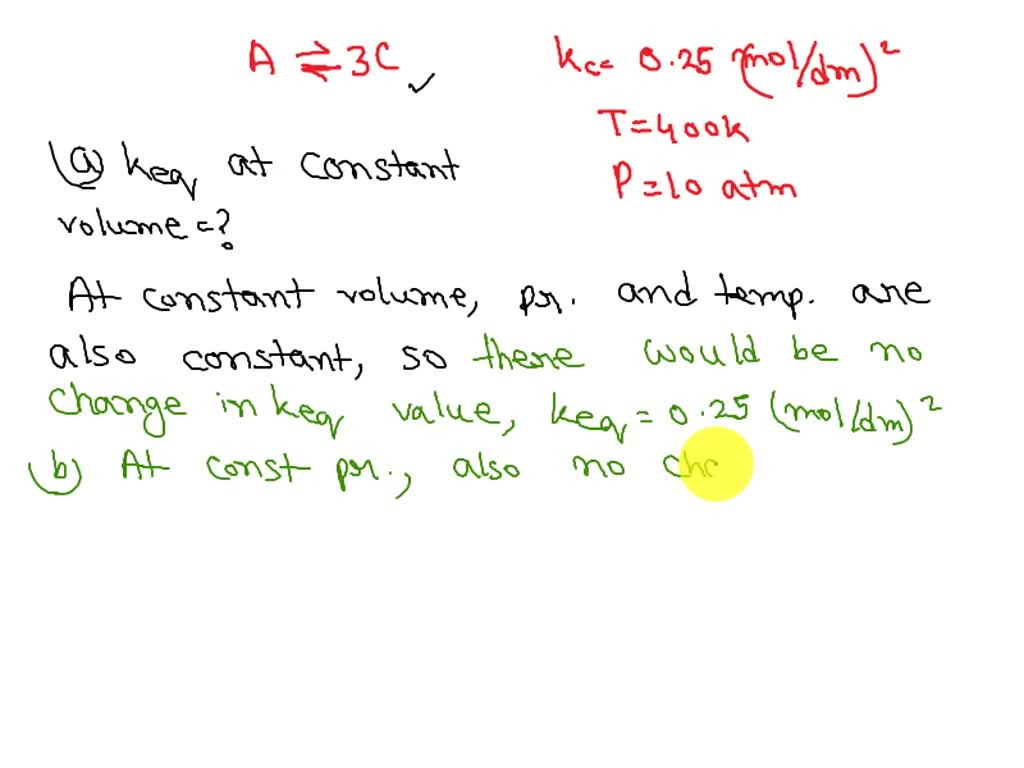 A ⇌ 3C ✓
kc= 0.25 (mol/dm)²
T=400k
P=10 atm
(a) keq at constant
volume=?
At constant volume, pr. and temp. are
also constant, so there would be no
change in keq value, keq = 0.25 (mol/dm)²
(b) At const pr., also no cha